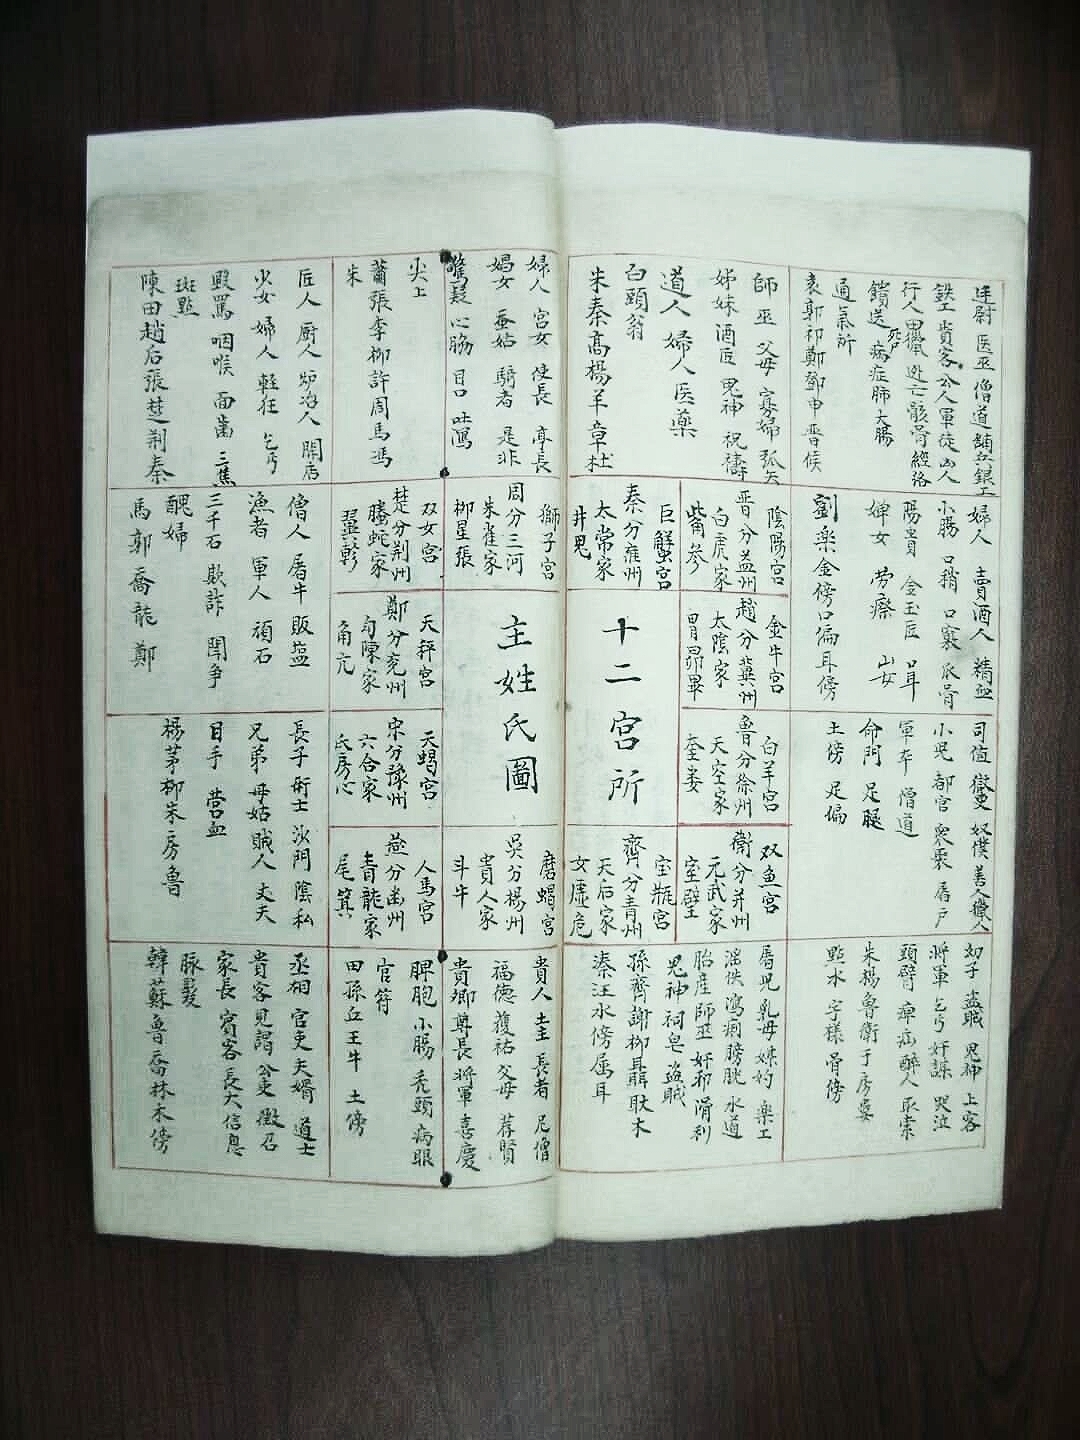 十二宮所
主姓氏圖
廷尉 医巫 僧道 鋪兵 銀工
鉄工 貴客 公人 軍徒 山人
行人 田獵 逃亡 骸骨 經絡
鎖送 死尸 病症 肺 大腸
通氣所
袁郭祁鄭鄧申晋侯
師巫 父母 寡婦 弧矢
姊妹 酒匠 鬼神 祝禱
道人 婦人 医藥
白頭翁
朱秦高楊羊章杜
婦人 宮女 使長 亭長
娼女 蚕姑 騎者 是非
驚疑 心腸 目口 吐瀉
尖上
蕭張李柳許周馬馮
朱
匠人 厨人 炉冶人 開店
少女 婦人 輕狂 乞丐
毁罵 咽喉 面齒 三焦
斑點
陳田趙后張楚荆秦
婦人 賣酒人 精血
小腸 口稍 口裏 爪骨
陽貴 金玉匠 口耳
婢女 劳瘵 山女
劉樂金傍口偏耳傍
陰陽宮
晋分益州
白虎家
觜參
巨蟹宮
秦分雍州
太常家
井鬼
獅子宮
周分三河
朱雀家
柳星張
双女宮
楚分荆州
螣蛇家
翌軫
僧人 屠牛 販盐
漁者 軍人 頑石
三千石 欺詐 閗争
醜婦
馬郭喬龍鄭
金牛宮
趙分冀州
太陰家
胃昴畢
天秤宮
鄭分兖州
勾陳家
角亢
司值 獄吏 奴僕 善人 獵人
小児 都官 衆聚 屠户
軍卒 僧道
命門 足腿
土傍 足偏
白羊宮
魯分徐州
天空家
奎婁
天蝎宮
宋分豫州
六合家
氐房心
長子 術士 沙門 陰私
兄弟 母姑 賊人 丈夫
目手 营血
楊茅柳朱房魯
双鱼宮
衛分并州
元武家
室壁
宝瓶宮
齊分青州
天后家
女虚危
磨蝎宮
吳分楊州
貴人家
斗牛
人馬宮
燕分幽州
青龍家
尾箕
幼子 盗賊 鬼神 上客
將軍 乞丐 奸謀 哭泣
頭臂 痺疝 醉人 取索
朱楊魯衛于房婁
點水 字樣 骨傍
屠児 乳母 媒妁 樂工
滛佚 瀉痢 膀胱 水道
胎産 師巫 奸邪 滑利
鬼神 祠皂 盗賊
孫齊謝柳聶耿木
溱汪水傍届耳
貴人 土主 長者 尼僧
福德 護祐 父母 荐賢
貴卿 尊長 將軍 喜慶
脾胞 小腸 秃頭 病眼
官符
田孫丘王牛 土傍
丞相 官吏 夫婿 道士
貴客 見謁 公吏 徵召
家長 賓客 長大 信息
脉髪
韓蘇魯喬林木傍